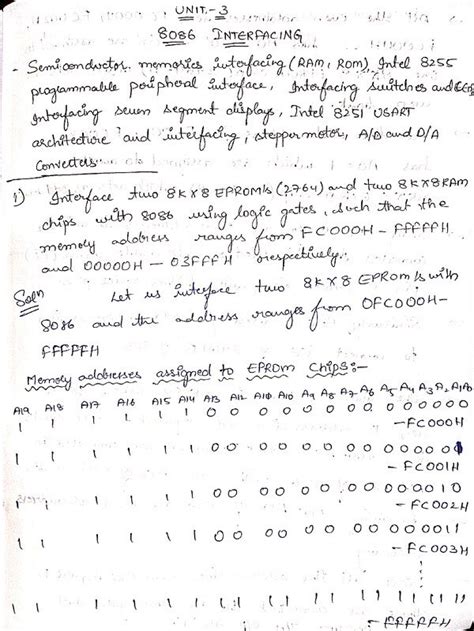 UNIT-3
8086 INTERFACING
- Semiconductor memories interfacing (RAM, ROM), Intel 8255
programmable peripheral interface, Interfacing switches and
Interfacing seven segment displays, Intel 8251 USART
architecture and interfacing, stepper motor, A/D and D/A
Converters.
1) Interface two 8K×8 EPROM's (2764) and two 8K×8 RAM
chips with 8086 using logic gates, such that the
memory address ranges from FC000H - FFFFFH
and 00000H - 03FFFH respectively.
Soln Let us interface two 8K×8 EPROM's with
8086 and the address ranges from 0FC000H-
FFFFFH
Memory addresses assigned to EPROM Chips:-
A19 A18 A17 A16 A15 A14 A13 A12 A11 A10 A9 A8 A7 A6 A5 A4 A3 A2 A1 A0
1 1 1 1 1 1 0 0 0 0 0 0 0 0 0 0 0 0 0 0
- FC000H
1 1 1 1 1 1 0 0 0 0 0 0 0 0 0 0 0 0 0 1
- FC001H
1 1 1 1 1 1 0 0 0 0 0 0 0 0 0 0 0 0 1 0
- FC002H
1 1 1 1 1 1 0 0 0 0 0 0 0 0 0 0 0 0 1 1
- FC003H
1 1 1 1 1 1 1 1 1 1 1 1 1 1 1 1 1 1 1 1
- FFFFFH